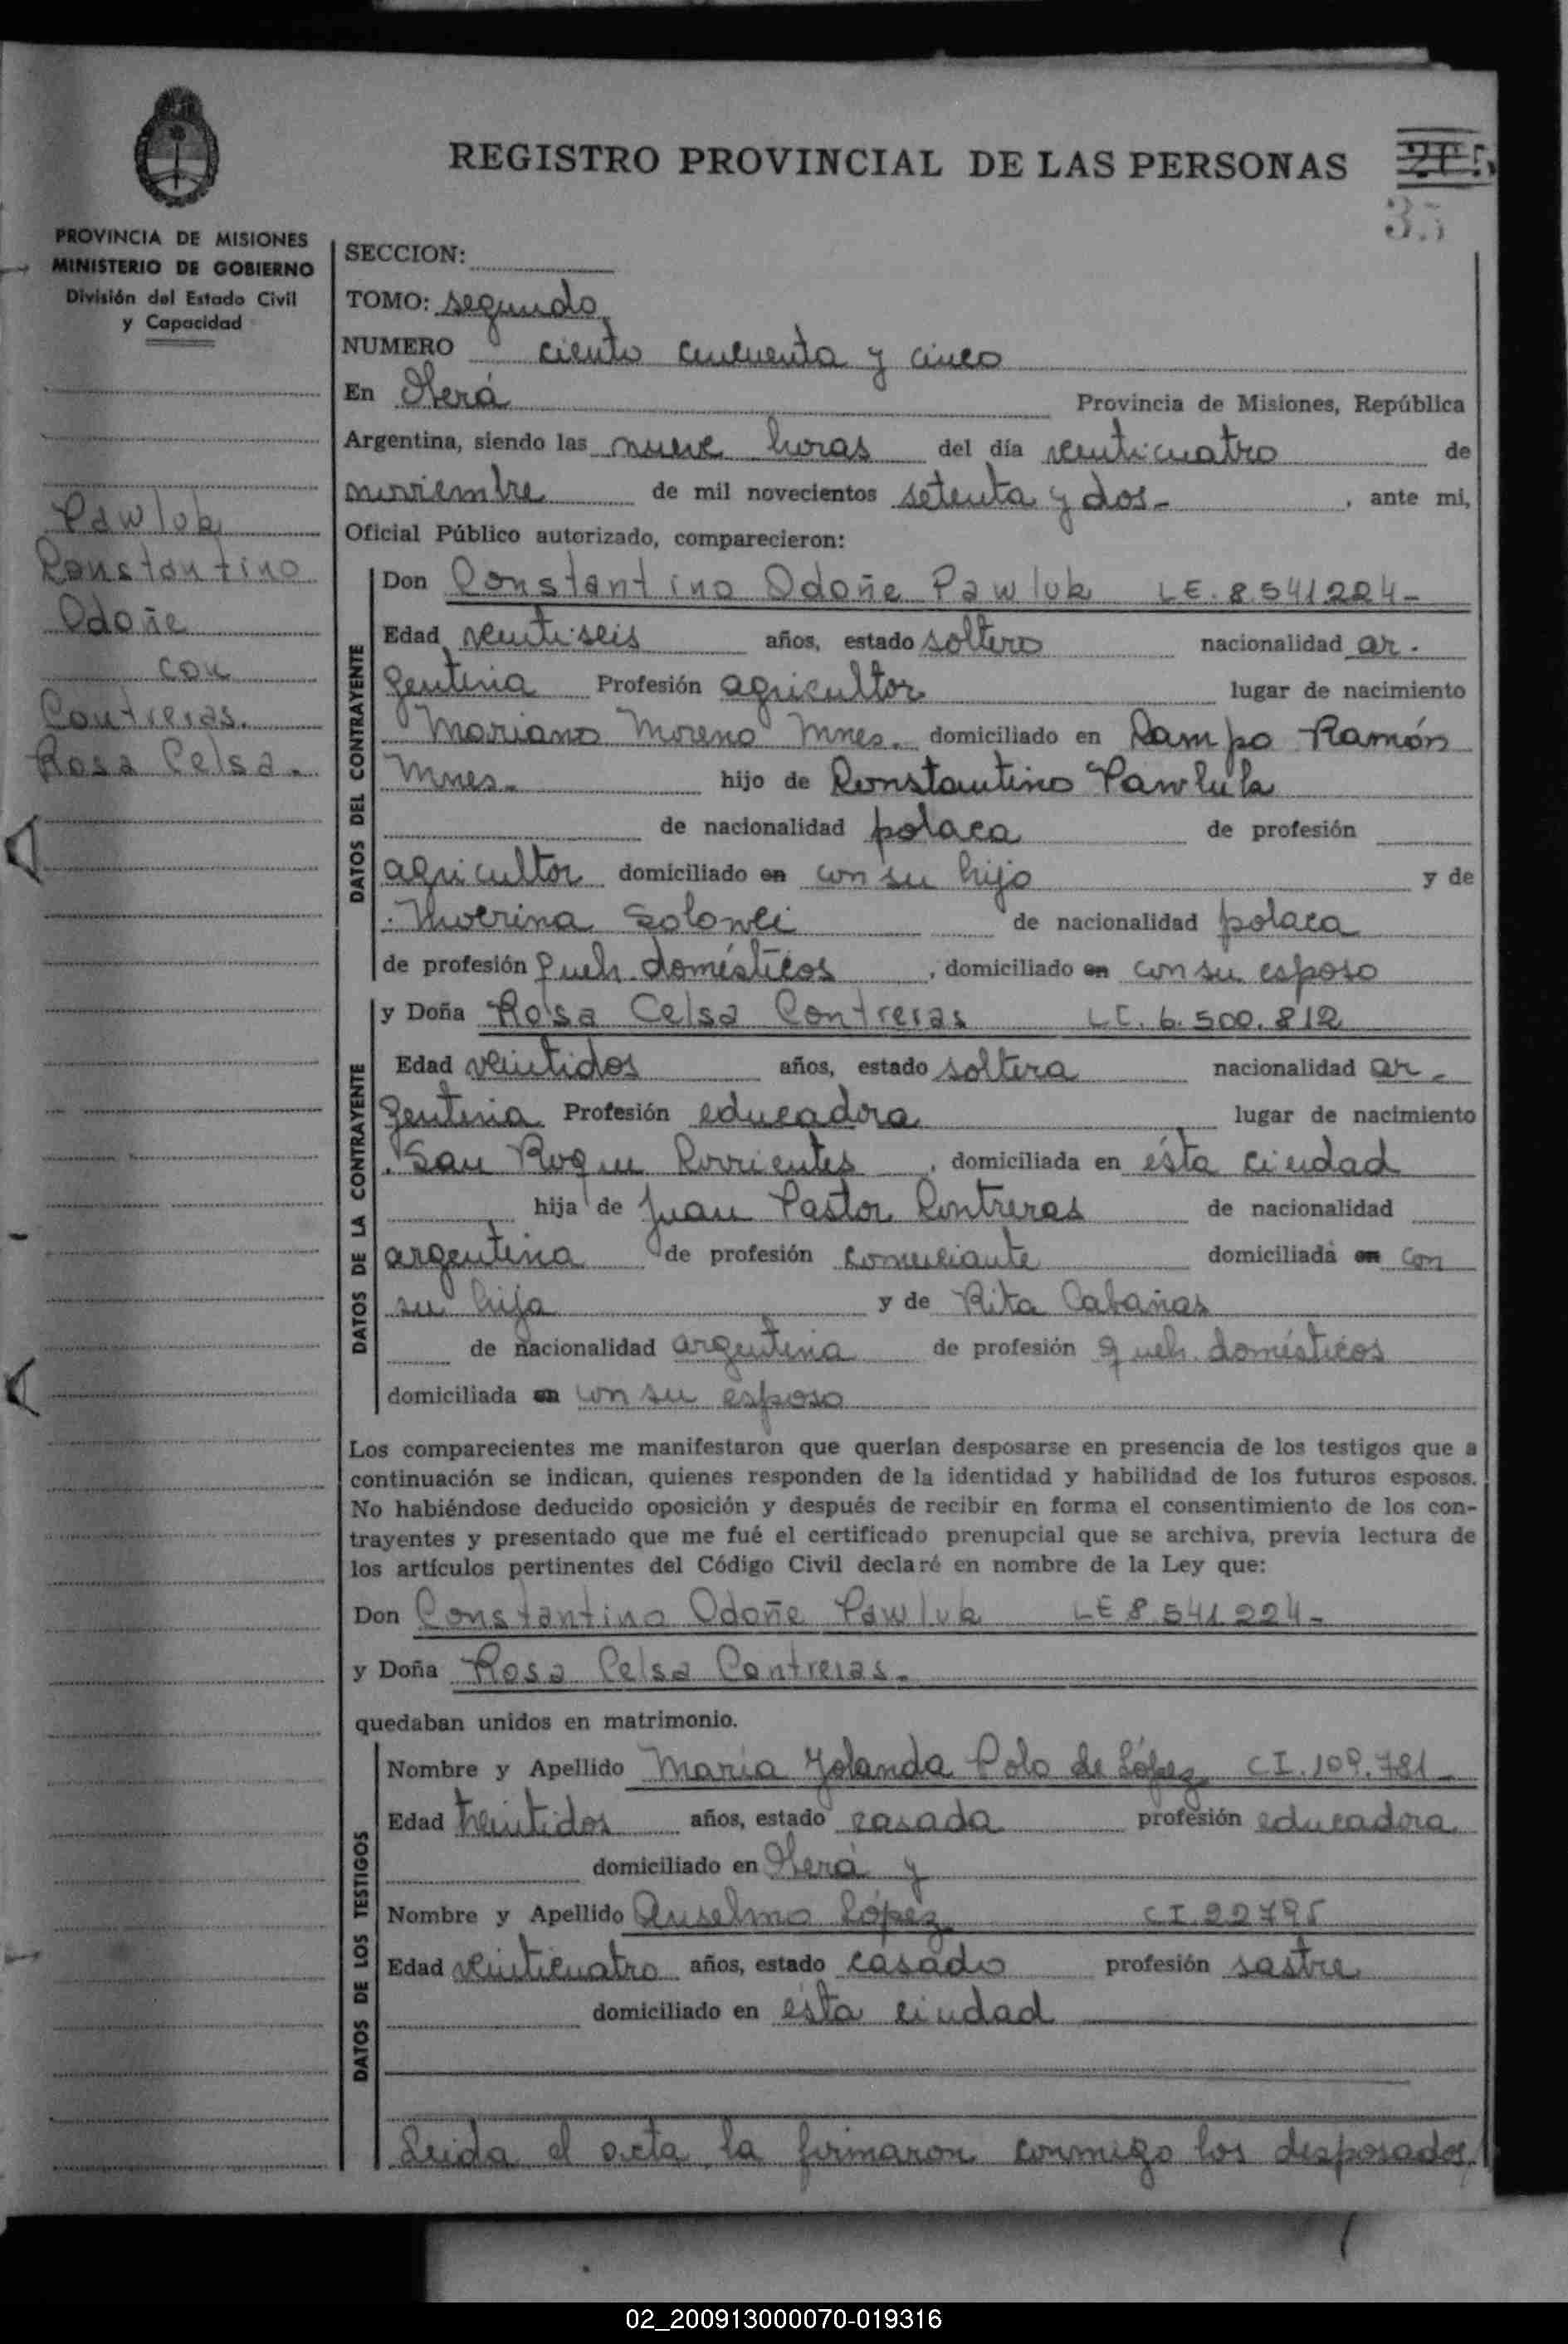 REGISTRO PROVINCIAL DE LAS PERSONAS
PROVINCIA DE MISIONES
MINISTERIO DE GOBIERNO
División del Estado Civil
y Capacidad
Pawluk
Constantino
Odoñe
con
Contreras.
Rosa Celsa.
SECCION:
TOMO: segundo
NUMERO ciento cincuenta y cinco
En Oberá Provincia de Misiones, República
Argentina, siendo las nueve horas del día venticuatro de
noviembre de mil novecientos setenta y dos- , ante mi,
Oficial Público autorizado, comparecieron:
DATOS DEL CONTRAYENTE
Don Constantino Odoñe Pawluk LE. 8.541.224-
Edad ventiseis años, estado soltero nacionalidad ar-
gentina Profesión agricultor lugar de nacimiento
Mariano Moreno Mnes. domiciliado en Campo Ramón
Mnes. hijo de Constantino Pawluk
de nacionalidad polaca de profesión
agricultor domiciliado en con su hijo y de
de nacionalidad polaca
de profesión queh. domésticos , domiciliado en con su esposo
DATOS DE LA CONTRAYENTE
y Doña Rosa Celsa Contreras LC. 6.500.812
Edad veintidos años, estado soltera nacionalidad ar-
gentina Profesión educadora lugar de nacimiento
San Roque Corrientes , domiciliada en ésta ciudad
hija de Juan Pastor Contreras de nacionalidad
argentina de profesión comerciante domiciliada en con
su hija y de Rita Cabañas
de nacionalidad argentina de profesión queh. domésticos
domiciliada en con su esposo
Los comparecientes me manifestaron que querían desposarse en presencia de los testigos que a
continuación se indican, quienes responden de la identidad y habilidad de los futuros esposos.
No habiéndose deducido oposición y después de recibir en forma el consentimiento de los con-
trayentes y presentado que me fué el certificado prenupcial que se archiva, previa lectura de
los artículos pertinentes del Código Civil declaré en nombre de la Ley que:
Don Constantino Odoñe Pawluk LE 8.541.224-
y Doña Rosa Celsa Contreras.-
quedaban unidos en matrimonio.
DATOS DE LOS TESTIGOS
Nombre y Apellido María Yolanda Polo de López CI.109.781-
Edad treintidos años, estado casada profesión educadora
domiciliado en Oberá y
Nombre y Apellido Anselmo López CI.22795
Edad veinticuatro años, estado casado profesión sastre
domiciliado en ésta ciudad
Leida el acta, la firmaron conmigo los desposados,
02_200913000070-019316